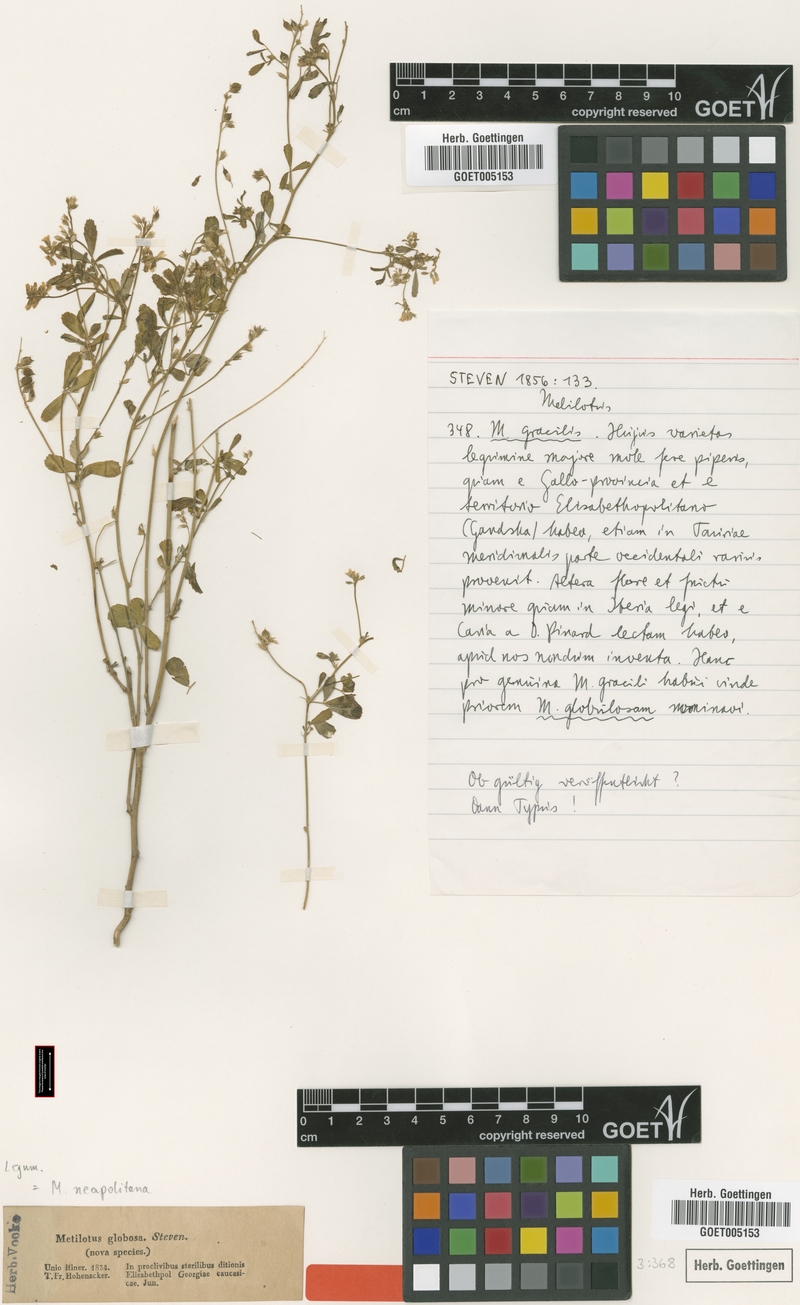 0 1 2 3 4 5 6 7 8 9 10
cm
copyright reserved
GOET
Herb. Goettingen
GOET005153
STEVEN 1856: 133.
Melilotus
348. M. gracilis. Hujus varietas
legumine majore mole fere piperis,
quam e Gallo-provincia et e
territorio Elisabethopolitano
(Gandsha) habeo, etiam in Tauriae
meridionalis parte occidentali rarius
provenit. Altera flore et fructu
minore quam in Iberia legi, et e
Caria a D. Pinard lectam habeo,
apud nos nondum inventa. Hanc
pro genuina M. gracili habui unde
priorem M. globulosam nominavi.
Ob gültig veröffentlicht ?
Dann Typus !
0 1 2 3 4 5 6 7 8 9 10
cm
copyright reserved
GOET
Legum.
= M. neapolitana
Herb. Vocke
Metilotus globosa. Steven.
(nova species.)
Unio itiner. 1834. In proclivibus sterilibus ditionis
T. Fr. Hohenacker. Elisabethpol Georgiae caucasi-
cae. Jun.
Herb. Goettingen
GOET005153
3:368
Herb. Goettingen